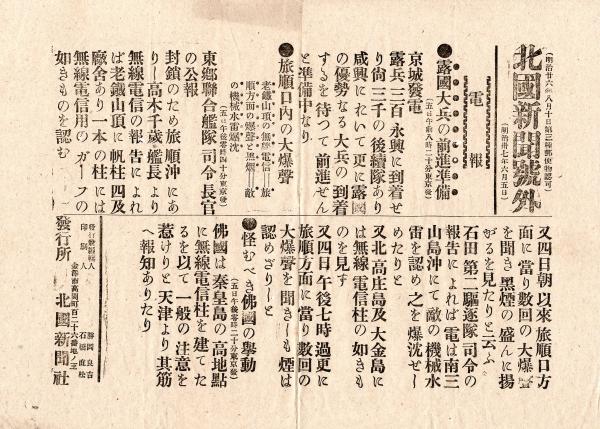 (明治廿六年八月十日第三種郵便物認可)
北國新聞號外
(明治卅七年六月五日)
電報
●露國大兵の前進準備
(五日午前八時二十分東京發)
京城發電
露兵三百永興に到着せ
り尚三千の後續隊あり
咸興において更に露國
の優勢なる大兵の到着
するを待つて前進せん
と準備中なり
●旅順口内の大爆聲
老鐵山頂の無線電信―旅
順方面の爆聲と黒煙―敵
の機械水雷爆沈
(五日午後零時四十分東京發)
東郷聯合艦隊司令長官
の公報
封鎖のため旅順沖にあ
りし高木千歳艦長より
無線電信の報告によれ
ば老鐵山頂に帆柱四及
廠舎あり一本の柱には
無線電信用のガーフの
如きものを認む
又四日朝以來旅順口方
面に當り數回の大爆聲
を聞き黒煙の盛んに揚
がるを見たりと云ふ
石田第二驅逐隊司令の
報告によれば電は南三
山島沖にて敵の機械水
雷を認め之を爆沈せし
めたりと
又北高庄島及大金島に
は無線電信柱の如きも
のを見す
又四日午後七時過更に
旅順方面に當り數回の
大爆聲を聞きしも煙は
認めざりしと
●怪むべき佛國の擧動
(五日午後零時二十分東京發)
佛國は秦皇島の高地點
に無線電信柱を建てた
るを以て一般の注意を
惹けりと天津より其筋
へ報知ありたり
發行兼編輯人 勝岡良吉
印刷人 石橋直松
金澤市高岡町百二十六番地ノ三
發行所 北國新聞社